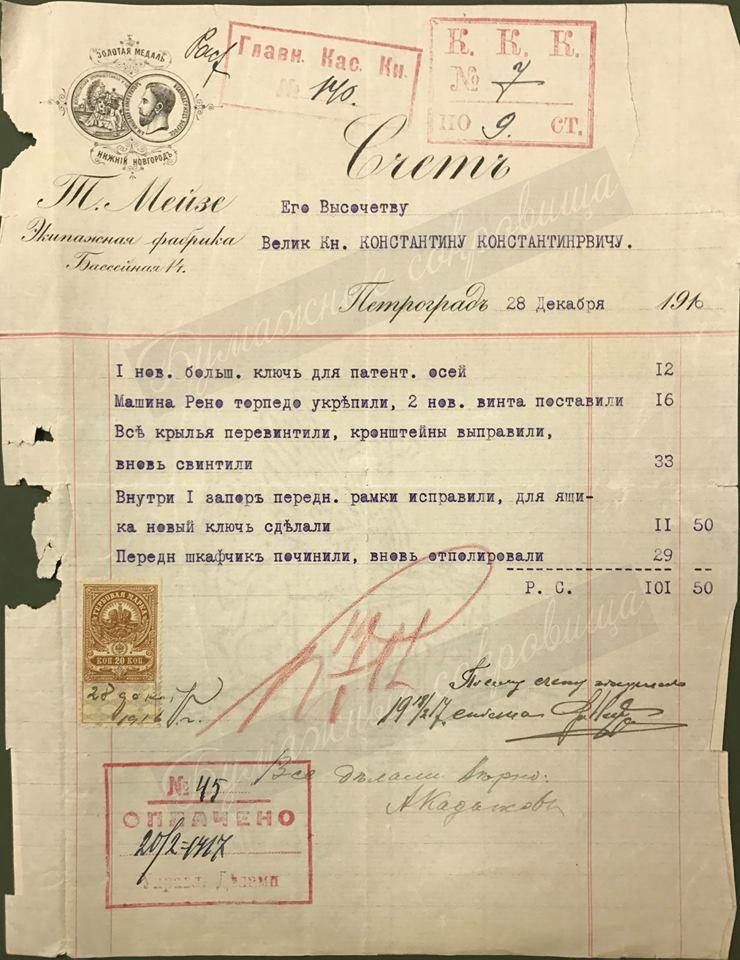 ЗОЛОТАЯ МЕДАЛЬ
НИЖНІЙ НОВГОРОДЪ
Главн. Кас. Кн.
№ 140.
К. К. К.
№ 7
ПО 9. СТ.
Счетъ
Т. Мейзе
Экипажная фабрика
Бассейная 14.
Его Высочетву
Велик Кн. КОНСТАНТИНУ КОНСТАНТИНРВИЧУ.
Петроградъ 28 Декабря 1916
I нов. больш. ключь для патент. осей 12
Машина Рено торпедо укрѣпили, 2 нов. винта поставили 16
Всѣ крылья перевинтили, кронштейны выправили,
вновь свинтили 33
Внутри I запоръ передн. рамки исправили, для ящи-
ка новый ключь сдѣлали II 50
Передн шкафчикъ починили, вновь отполировали 29
Р. С. IOI 50
ГЕРБОВАЯ МАРКА
КОП 20 КОП
28 дек.
1916 г.
По сему счету получилъ
19
Все дѣлали вѣрно.
№ 45
ОПЛАЧЕНО
20/2=1917
Управл. Дѣлами
Бумажные сокровища
Бумажные сокровища